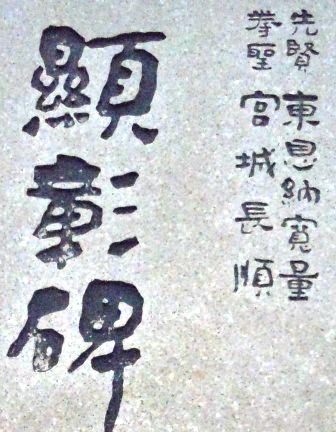 先賢 東恩納寛量
拳聖 宮城長順
顯彰碑